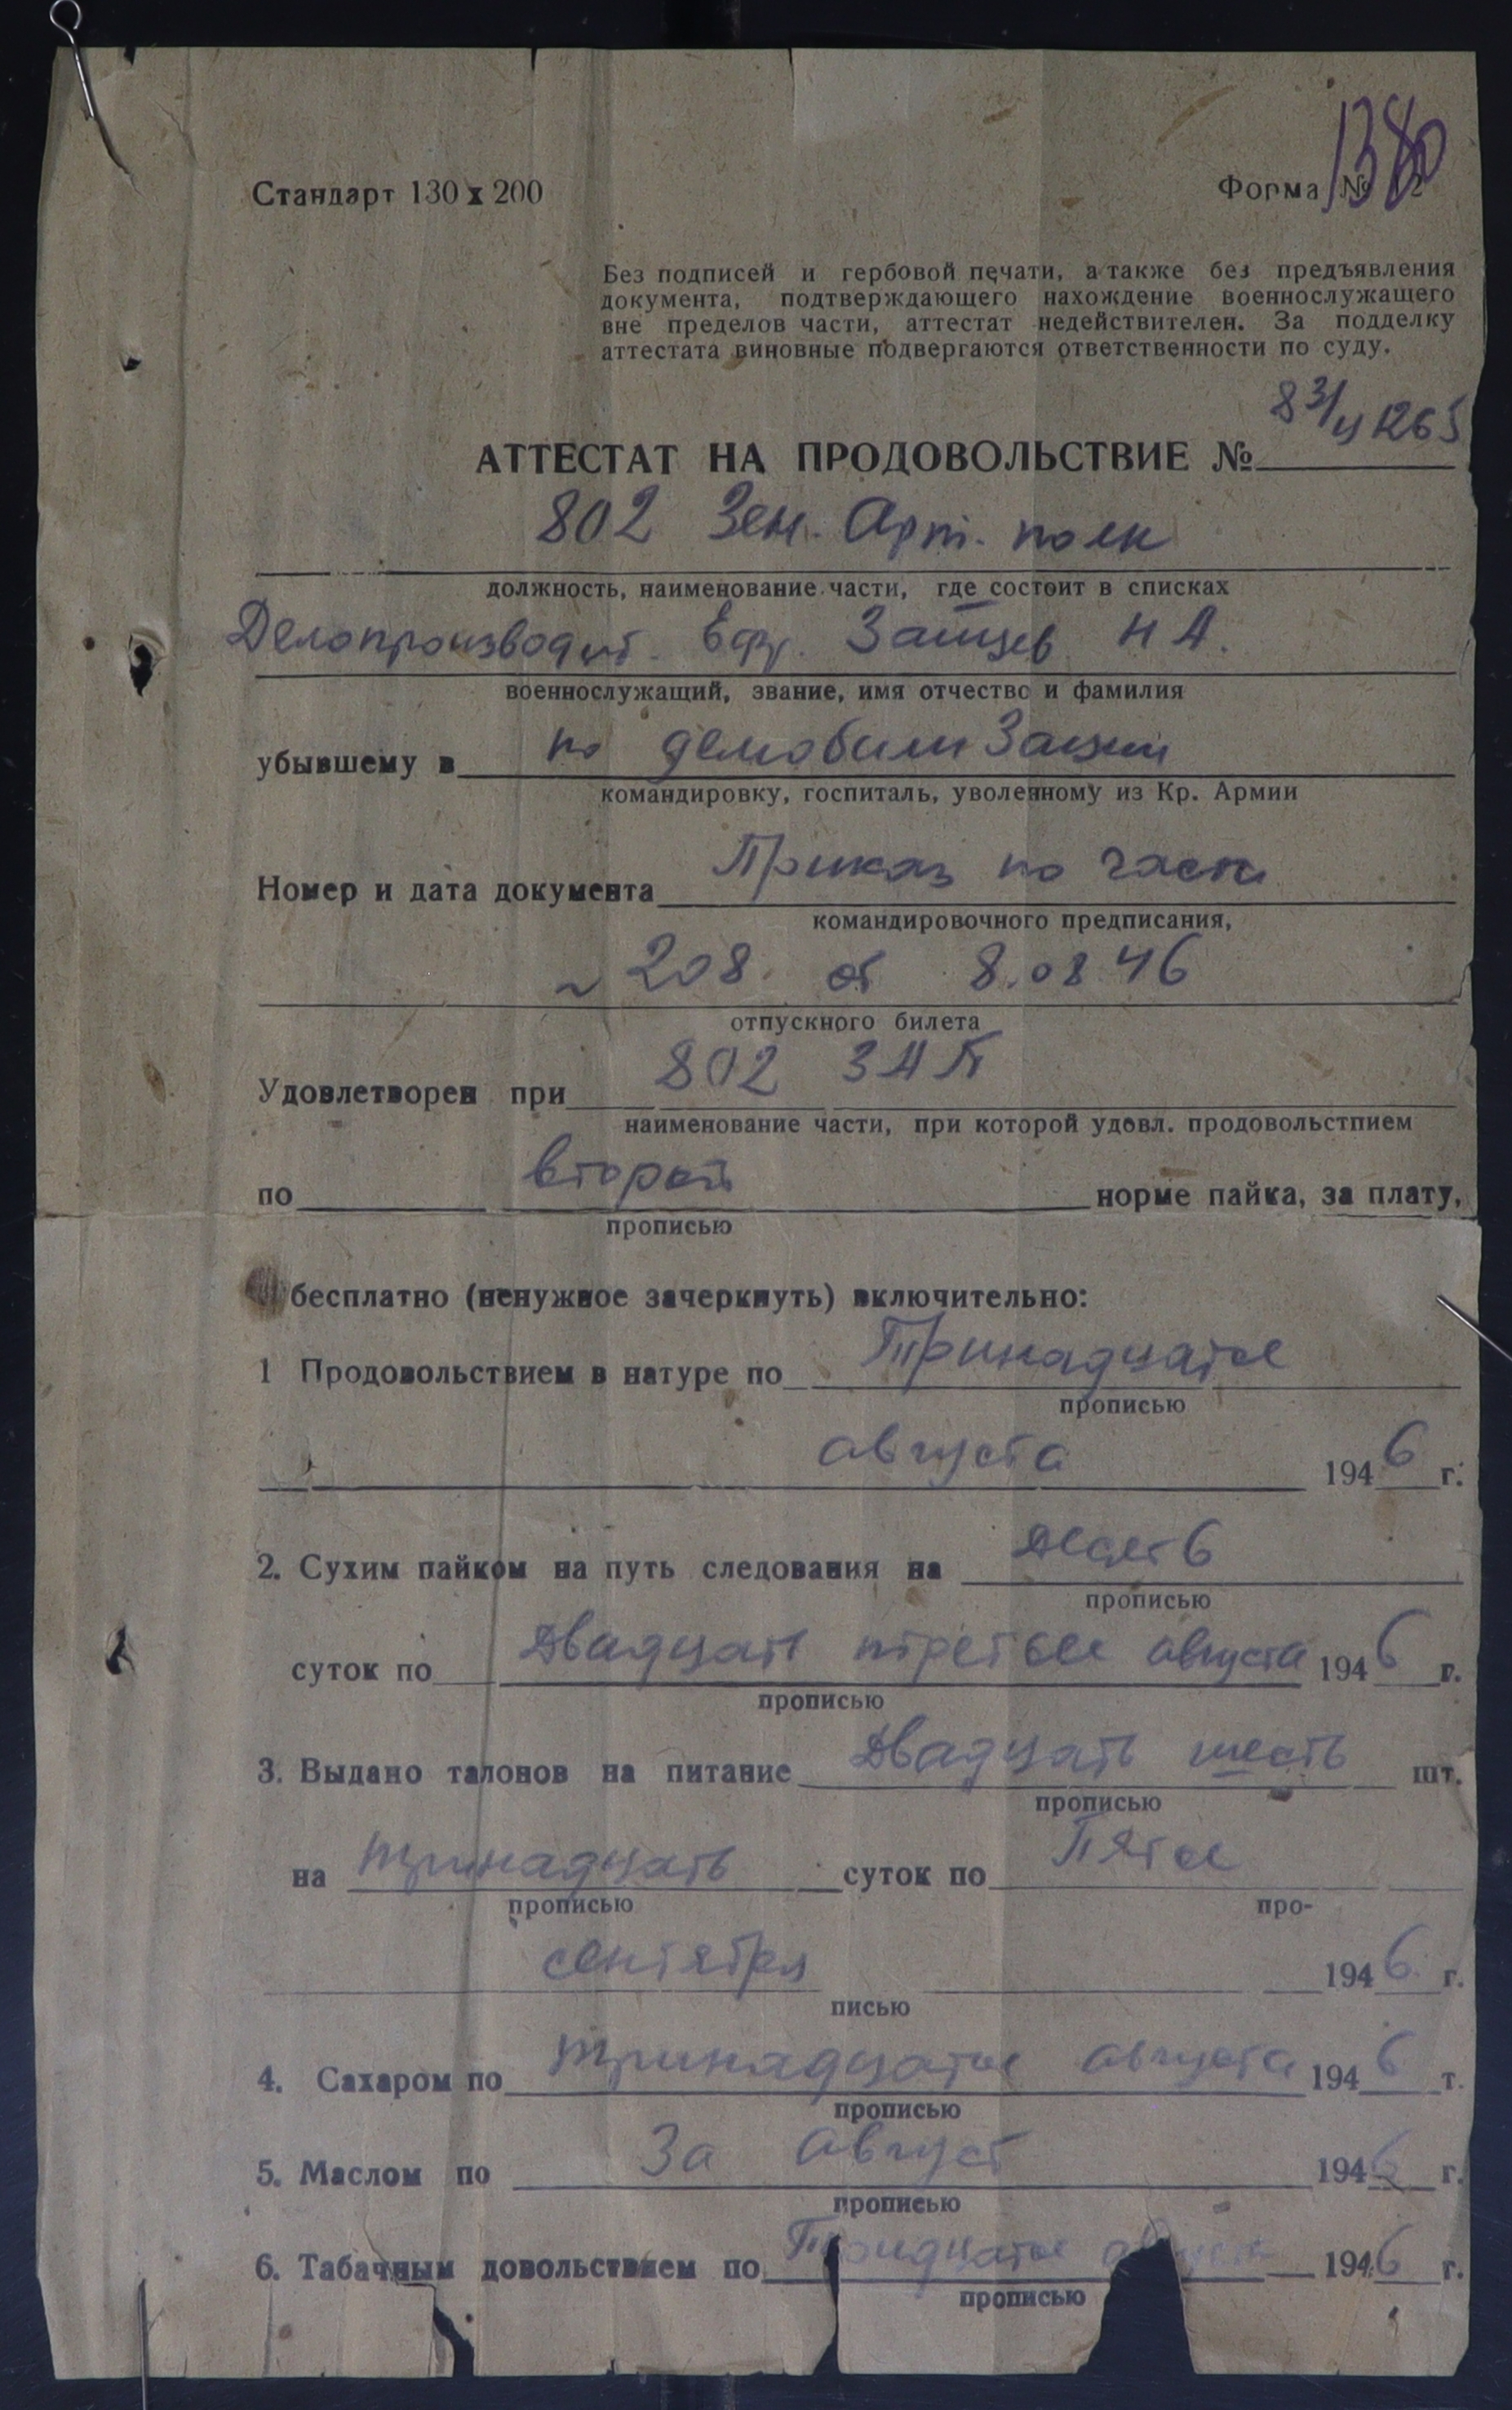 1380
Стандарт 130 х 200
Форма № 2
Без подписей и гербовой печати, а также без предъявления
документа, подтверждающего нахождение военнослужащего
вне пределов части, аттестат недействителен. За подделку
аттестата виновные подвергаются ответственности по суду.
АТТЕСТАТ НА ПРОДОВОЛЬСТВИЕ № 83/4 1265
802 Зен. Арт. полк
должность, наименование части, где состоит в списках
Делопроизводит. Ефр. Зайцев Н А.
военнослужащий, звание, имя отчество и фамилия
убывшему в по демобилизации
командировку, госпиталь, уволенному из Кр. Армии
Номер и дата документа Приказ по части
командировочного предписания,
~ 208 от 8.08 46
отпускного билета
Удовлетворен при 802 ЗАП
наименование части, при которой удовл. продовольстпием
по второй норме пайка, за плату,
прописью
бесплатно (ненужное зачеркнуть) включительно:
1 Продовольствием в натуре по Тринадцатое
прописью
августа 1946 г.
2. Сухим пайком на путь следования на десять
прописью
суток по Двадцать третьее августа 1946 г.
прописью
3. Выдано талонов на питание Двадцать шесть шт.
прописью
на тринадцать суток по Пятое
прописью про-
сентября 1946 г.
писью
4. Сахаром по тринадцатое августа 1946 т.
прописью
5. Маслом по За Август 1946 г.
прописью
6. Табачным довольствием по 1946 г.
прописью